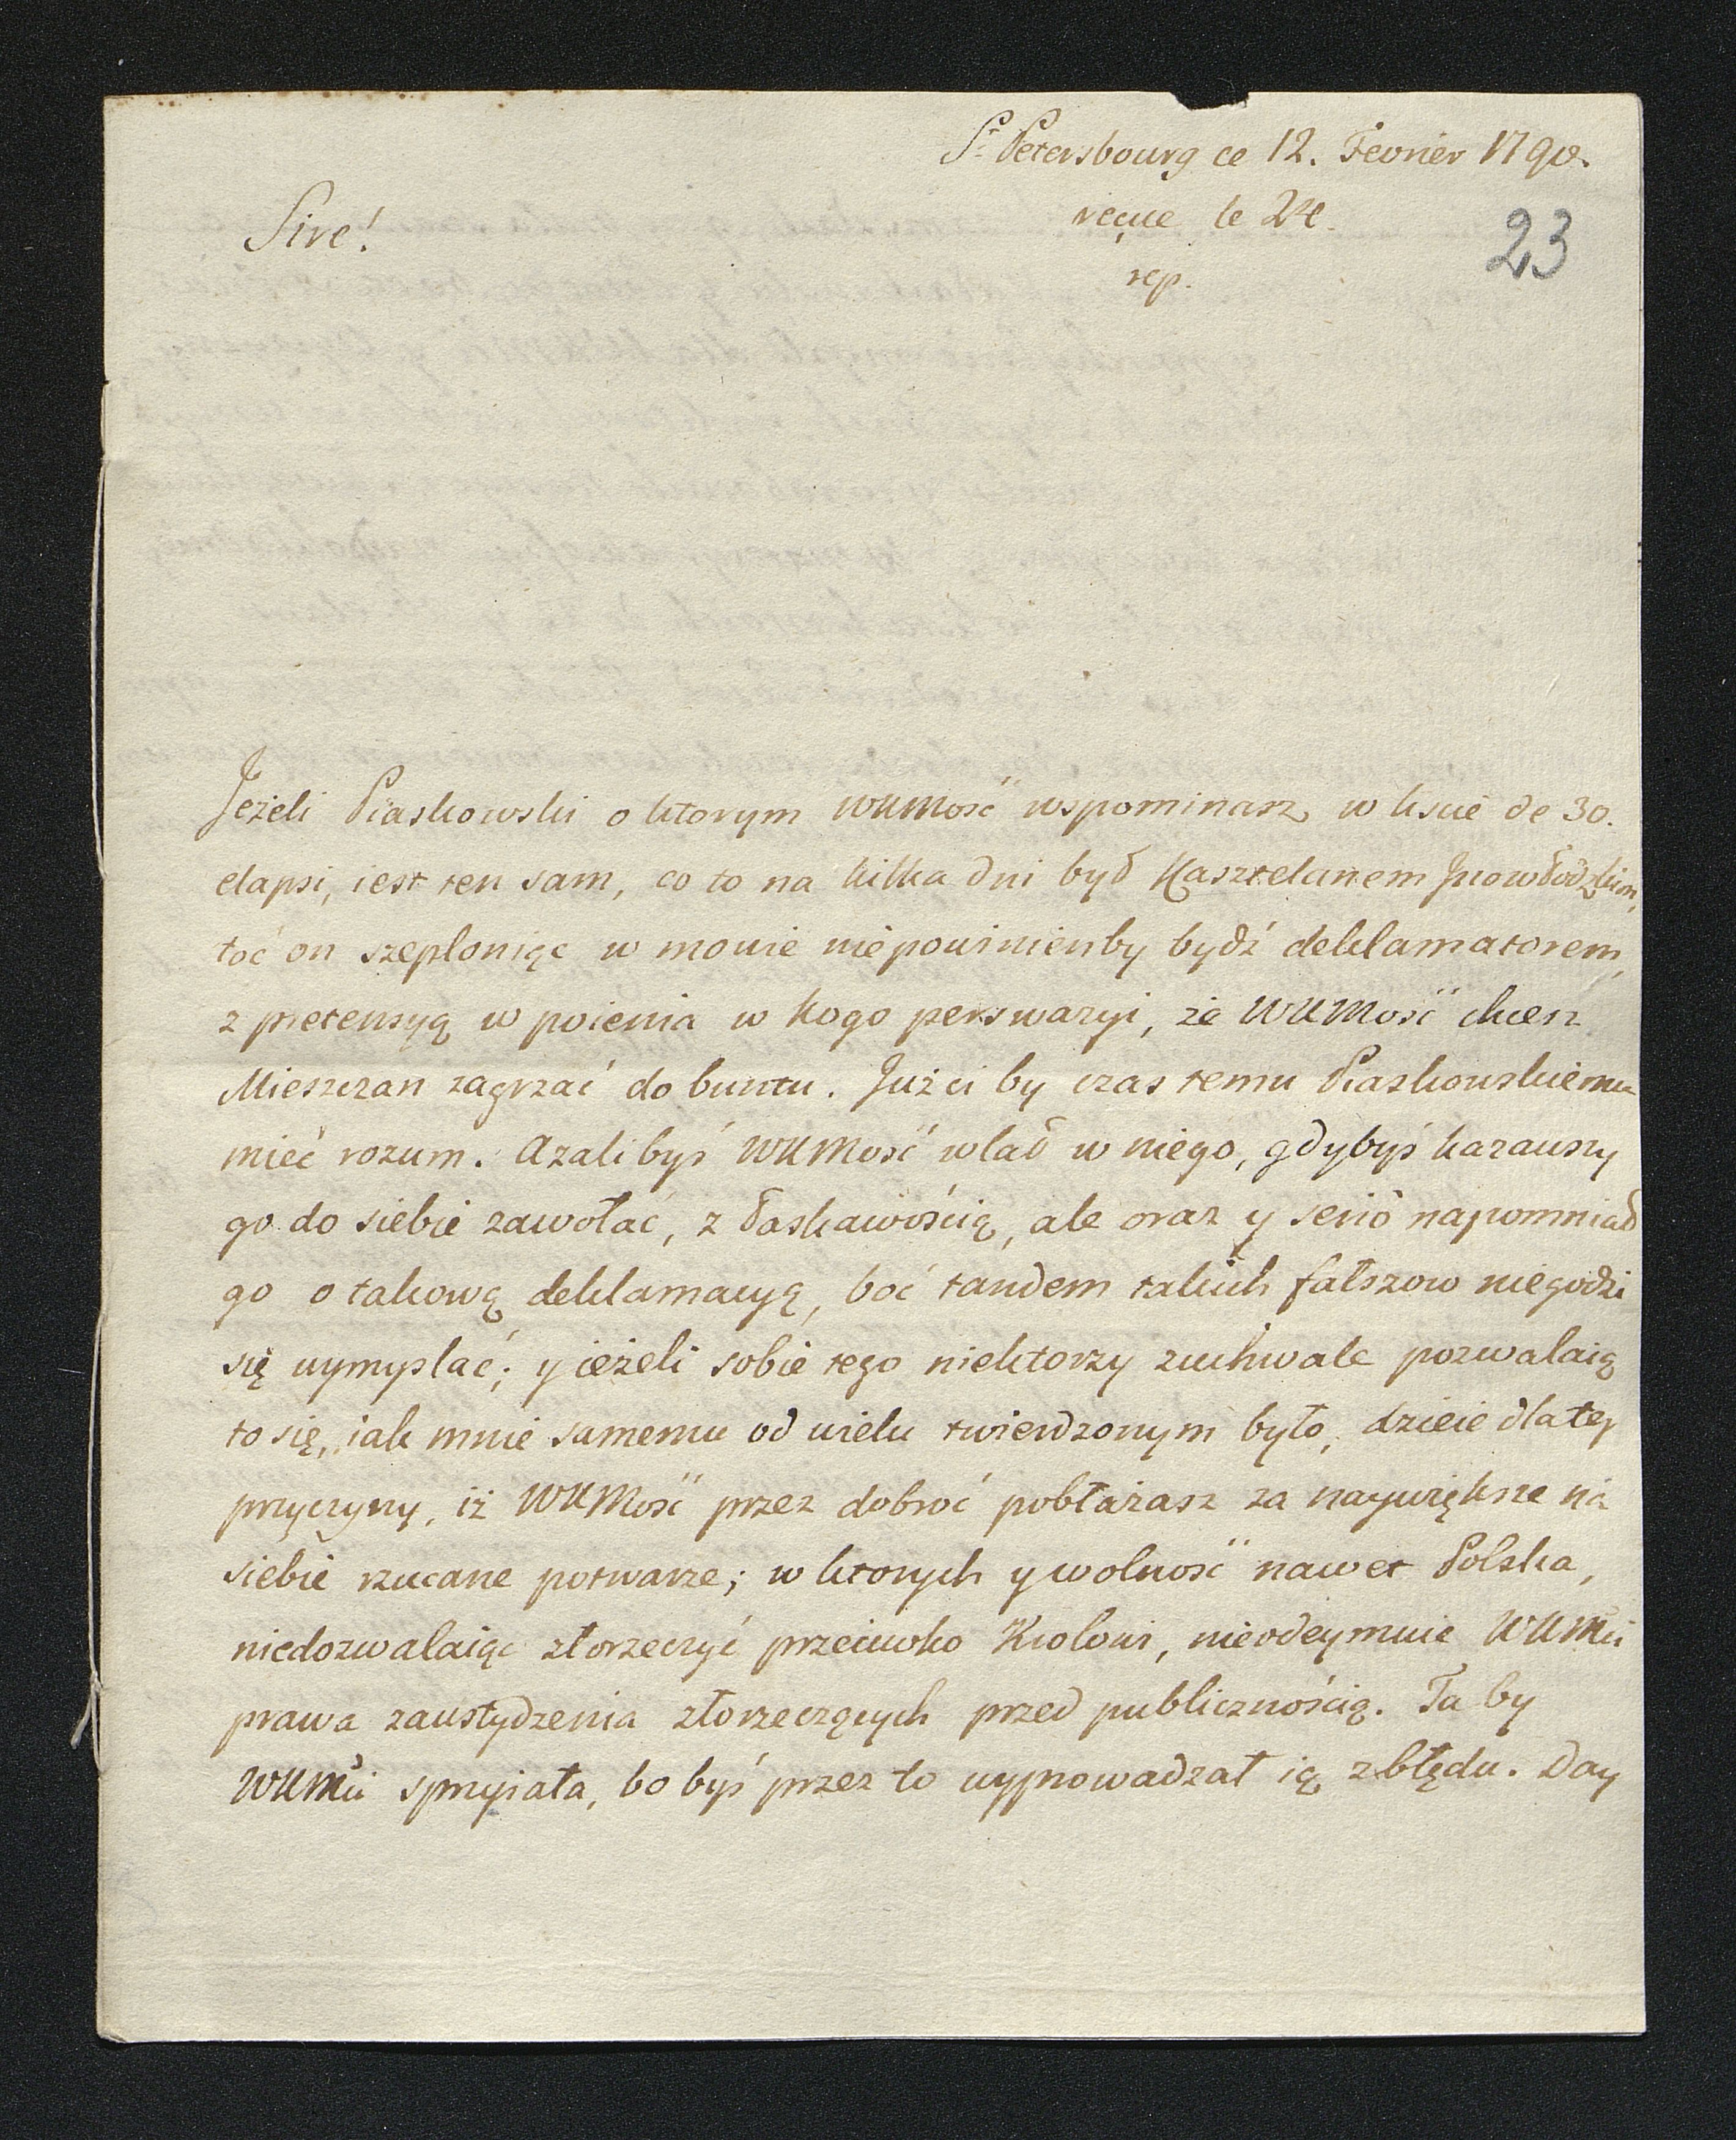 St Petersbourg ce 12. Fevrier 1790.
reçue le 24.
23
Sire!
rep.
Jeżeli Piaskowski o ktorym WKMość wspominasz w liscie de 30.
elapsi, iest ten sam, co to na kilka dni był Kasztelanem Inowłodzkim,
toć on szeploniąc w mowie niepowinienby bydź deklamatorem,
z pretensyą wpoienia w kogo perswazyi, że WKMość chcesz
Mieszczan zagrzać do buntu. Jużci by czas temu Piaskowskiemu
mieć rozum. Azalibyś WKMość wlał w niego, gdybyś kazawszy
go do siebie zawołać, z łaskawością, ale oraz y seriò napomniał
go o takową deklamacyą, boć tandem takich fałszow niegodzi
się wymyslać; y ieżeli sobie tego niektorzy zuchwale pozwalaią
to się, iak mnie samemu od wielu twierdzonym było, dzieie dla tey
przyczyny, iż WKMość przez dobroć pobłażasz za naywiększe na
siebie rzucane potwarze; w ktorych y wolność nawet Polska,
niedozwalaiąc złorzeczyć przeciwko Krolowi, nieodeymuie WKMci
prawa zawstydzenia złorzeczących przed publicznością. Ta by
WKMci sprzyiała, bo byś przez to wyprowadzał ią z błędu. Day